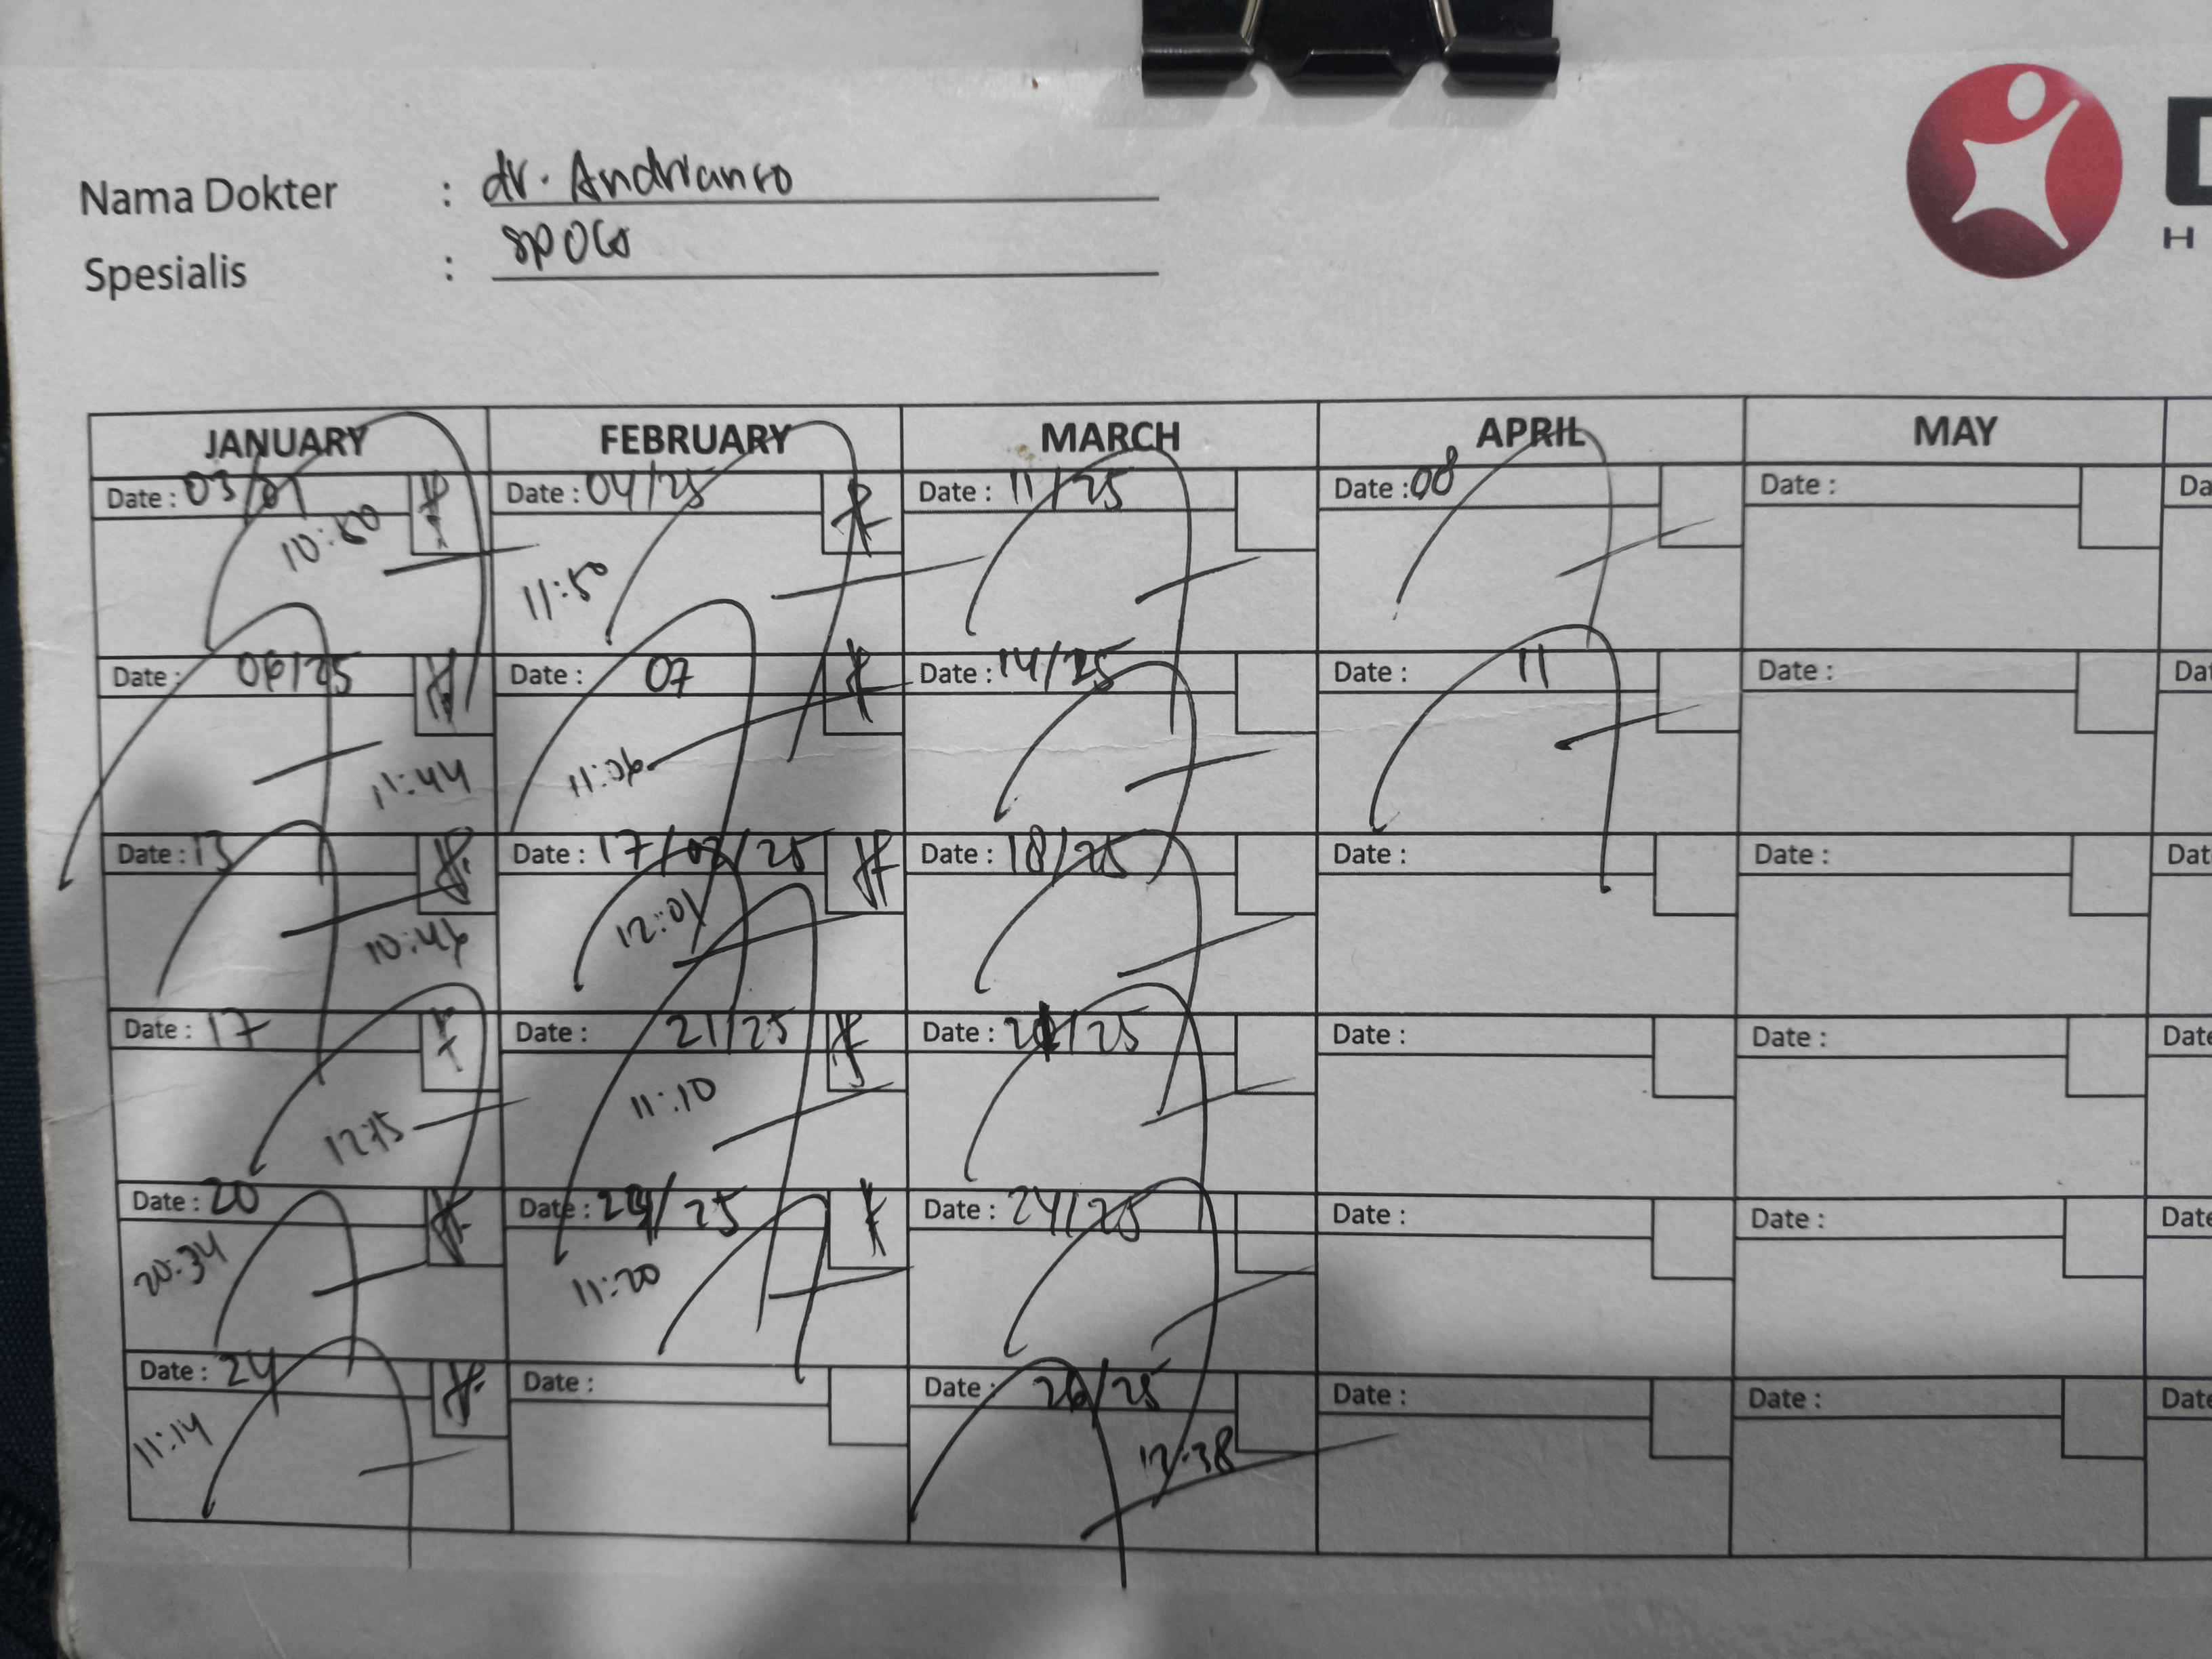 Nama Dokter : dr. Andrianro
Spesialis : SpOG
JANUARY FEBRUARY MARCH APRIL MAY
Date : 03/01 Date : 04/25 Date : 11/25 Date : 08 Date : Da
10:50 11:50
Date : 06/25 Date : 07 Date : 14/25 Date : 11 Date : Dat
11:44 11:06
Date : 13 Date : 17/02/25 Date : 18/25 Date : Date : Dat
10:46 12:01
Date : 17 Date : 21/25 Date : 21/25 Date : Date : Date
1215 11:10
Date : 20 Date : 24/25 Date : 24/25 Date : Date : Date
20:34 11:20
Date : 24 Date : Date : 26/25 Date : Date : Date
11:14 12:38